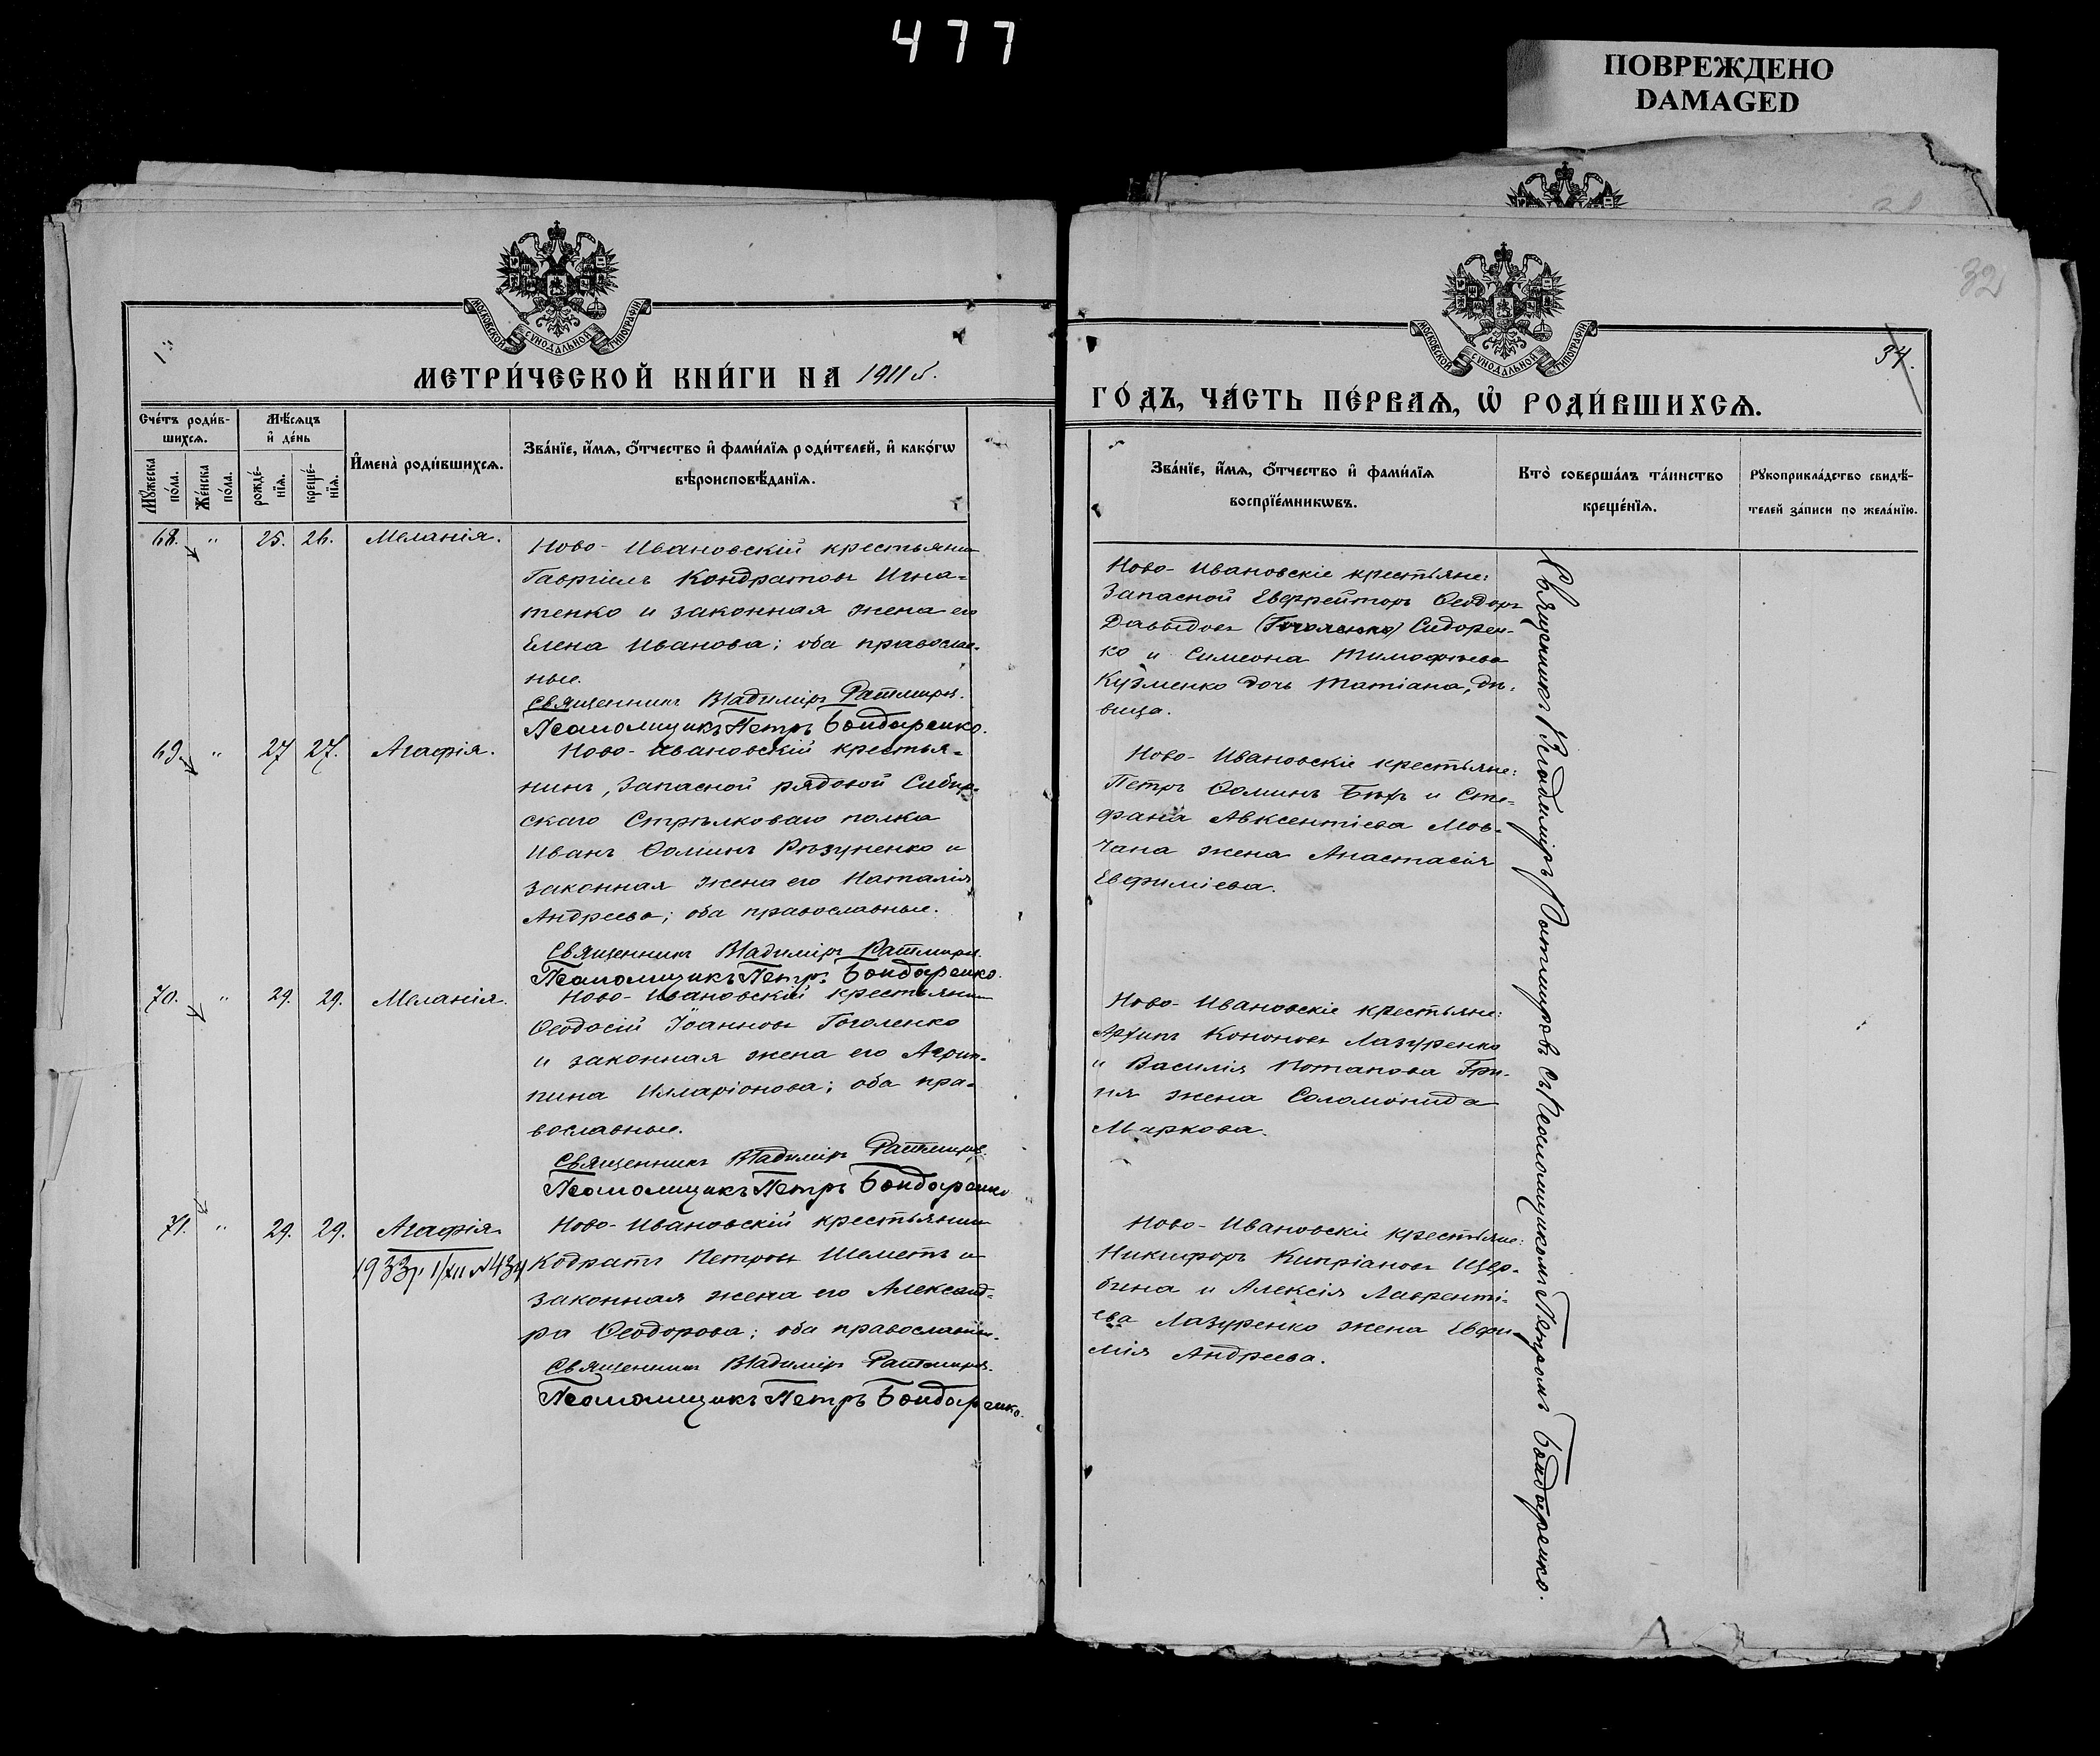 477
ПОВРЕЖДЕНО
DAMAGED
32
34.
МОСКОВСКОЙ СѴНОДАЛЬНОЙ ТИПОГРАФІИ
МЕТРИ́ЧЕСКОЙ КНИ́ГИ НА 1911й.
Сче́тъ роди́в-
шихсѧ.
Мꙋ́жеска по́ла.
Же́нска по́ла.
Мѣ́сѧцъ
и҆ де́нь
рожде́-
нїѧ.
креще́-
нїѧ.
И҆мена̀ роди́вшихсѧ.
Зва́нїе, и҆́мѧ, ѻ҆́тчество и҆ фами́лїѧ роди́телей, и҆ како́гѡ
вѣроисповѣ́данїѧ.
68. " 25. 26. Меланія.
Ново-Ивановскій крестьянин
Гавріилъ Кондратовъ Игна-
тенко и законная жена его
Елена Иванова; оба православ-
ные.
Священникъ Владиміръ Ратмиров.
Псаломщикъ Петръ Бондаренко.
69. " 27 27. Агафія.
Ново-Ивановскій крестья-
нинъ, запасной рядовой Сибир-
скаго Стрѣлковаго полка
Иванъ Ѳоминъ Рѣзуненко и
законная жена его Наталія
Андреева; оба православные.
Священникъ Владиміръ Ратмиров.
Псаломщикъ Петръ Бондаренко.
70. " 29. 29. Меланія.
Ново-Ивановскій крестьянин
Ѳеодосій Іоанновъ Гоголенко
и законная жена его Агрип-
пина Илларіонова; оба пра-
вославные.
Священникъ Владиміръ Ратмиров.
Псаломщикъ Петръ Бондаренко
71. " 29. 29. Агафія
1933г. 1/XII № 434
Ново-Ивановскій крестьянин
Кодратъ Петровъ Шеметъ и
законная жена его Александ-
ра Ѳеодорова; оба православн.
Священникъ Владиміръ Ратмиров.
Псаломщикъ Петръ Бондаренко.
МОСКОВСКОЙ СѴНОДАЛЬНОЙ ТИПОГРАФІИ
ГО́ДЪ, ЧА́СТЬ ПЕ́РВАѦ, Ѡ҆ РОДИ́ВШИХСѦ.
Зва́нїе, и҆́мѧ, ѻ҆́тчество и҆ фами́лїѧ
воспрїе́мникѡвъ.
Кто̀ соверша́лъ та́инство
креще́нїѧ.
Рꙋкоприкла́дство свидѣ́-
телей за́писи по жела́нїю.
Ново-Ивановскіе крестьяне:
Запасной Ефрейторъ Ѳеодоръ
Давыдовъ (Гоголенко) Сидорен-
ко и Симеона Тимофѣева
Кузменко дочь Татіана, дѣ-
вица.
Ново-Ивановскіе крестьяне:
Петръ Ѳоминъ и Сте-
фана Авксентіева Мов-
чана жена Анастасія
Евфиміева.
Ново-Ивановскіе крестьяне:
Архипъ Кононовъ Лазуренко
и Василія Потапова Гри-
ня жена Соломонида
Маркова.
Ново-Ивановскіе крестьяне:
Никифоръ Кипріановъ Щер-
бина и Алексія Лаврентi-
ева Лазуренко жена Евфи-
мія Андреева.
Священникъ Владиміръ Ратмировъ съ Псаломщикомъ Петромъ Бондаренко.